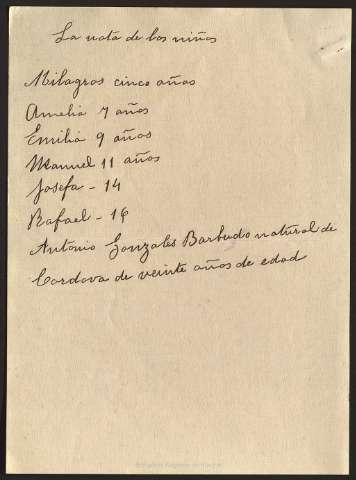 La nota de los niños
Milagros cinco años
Amelia 7 años
Emilia 9 años
Manuel 11 años
Josefa - 14
Rafael - 16
Antonio Gonzales Barbudo natural de
Cordova de veinte años de edad